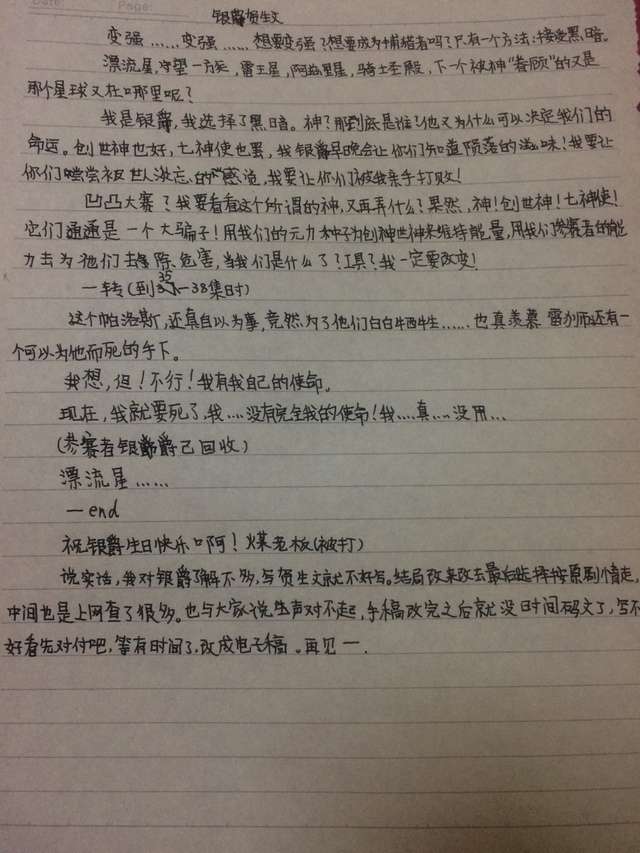 Date: Page:
银爵贺生文
变强……变强……想要变强？想要成为捕猎者吗？只有一个方法：接受黑暗。
漂流星，守望一方矣，雷王星，阿兹里星，骑士圣殿，下一个被神“眷顾”的又是
那个星球又在哪里呢？
我是银爵，我选择了黑暗。神？那到底是谁？他又为什么可以决定我们的
命运。创世神也好，七神使也罢，我银爵早晚会让你们知道陨落的滋味！我要让
你们嚐尝被世人淡忘的感觉，我要让你们被我亲手打败！
凹凸大赛？我要看看这个所谓的神，又再弄什么？果然，神！创世神！七神使！
它们通通是一个大骗子！用我们的元力种子为创神世神来维持能量，用我们参赛者的能
力去为他们去除危害，当我们是什么了？工具？我一定要改变！
一转（到35—38集时）
这个帕洛斯，还真自以为事，竟然为了他们白白牺牲……也真羡慕雷狮还有一
个可以为他而死的手下。
我想，但！不行！我有我自己的使命。
现在，我就要死了，我……没有完全我的使命！我……真……没用…
（参赛者银爵已回收）
漂流星……
—end
祝银爵生日快乐啊！煤老板（被打）
说实话，我对银爵了解不多，写贺生文就不好写。结局改来改去最后选择按原剧情走，
中间也是上网查了很多。也与大家说生声对不起，手稿改完之后就没时间码文了，写不
好看先对付吧，等有时间了，改成电子稿。再见一.